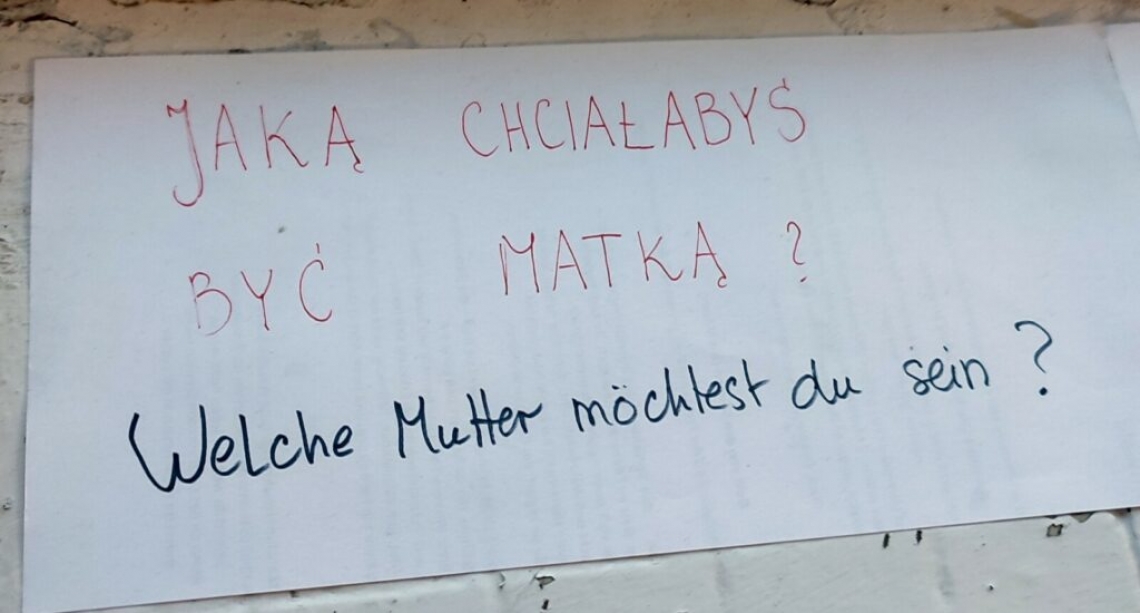 JAKĄ CHCIAŁABYŚ
BYĆ MATKĄ ?
Welche Mutter möchtest du sein ?